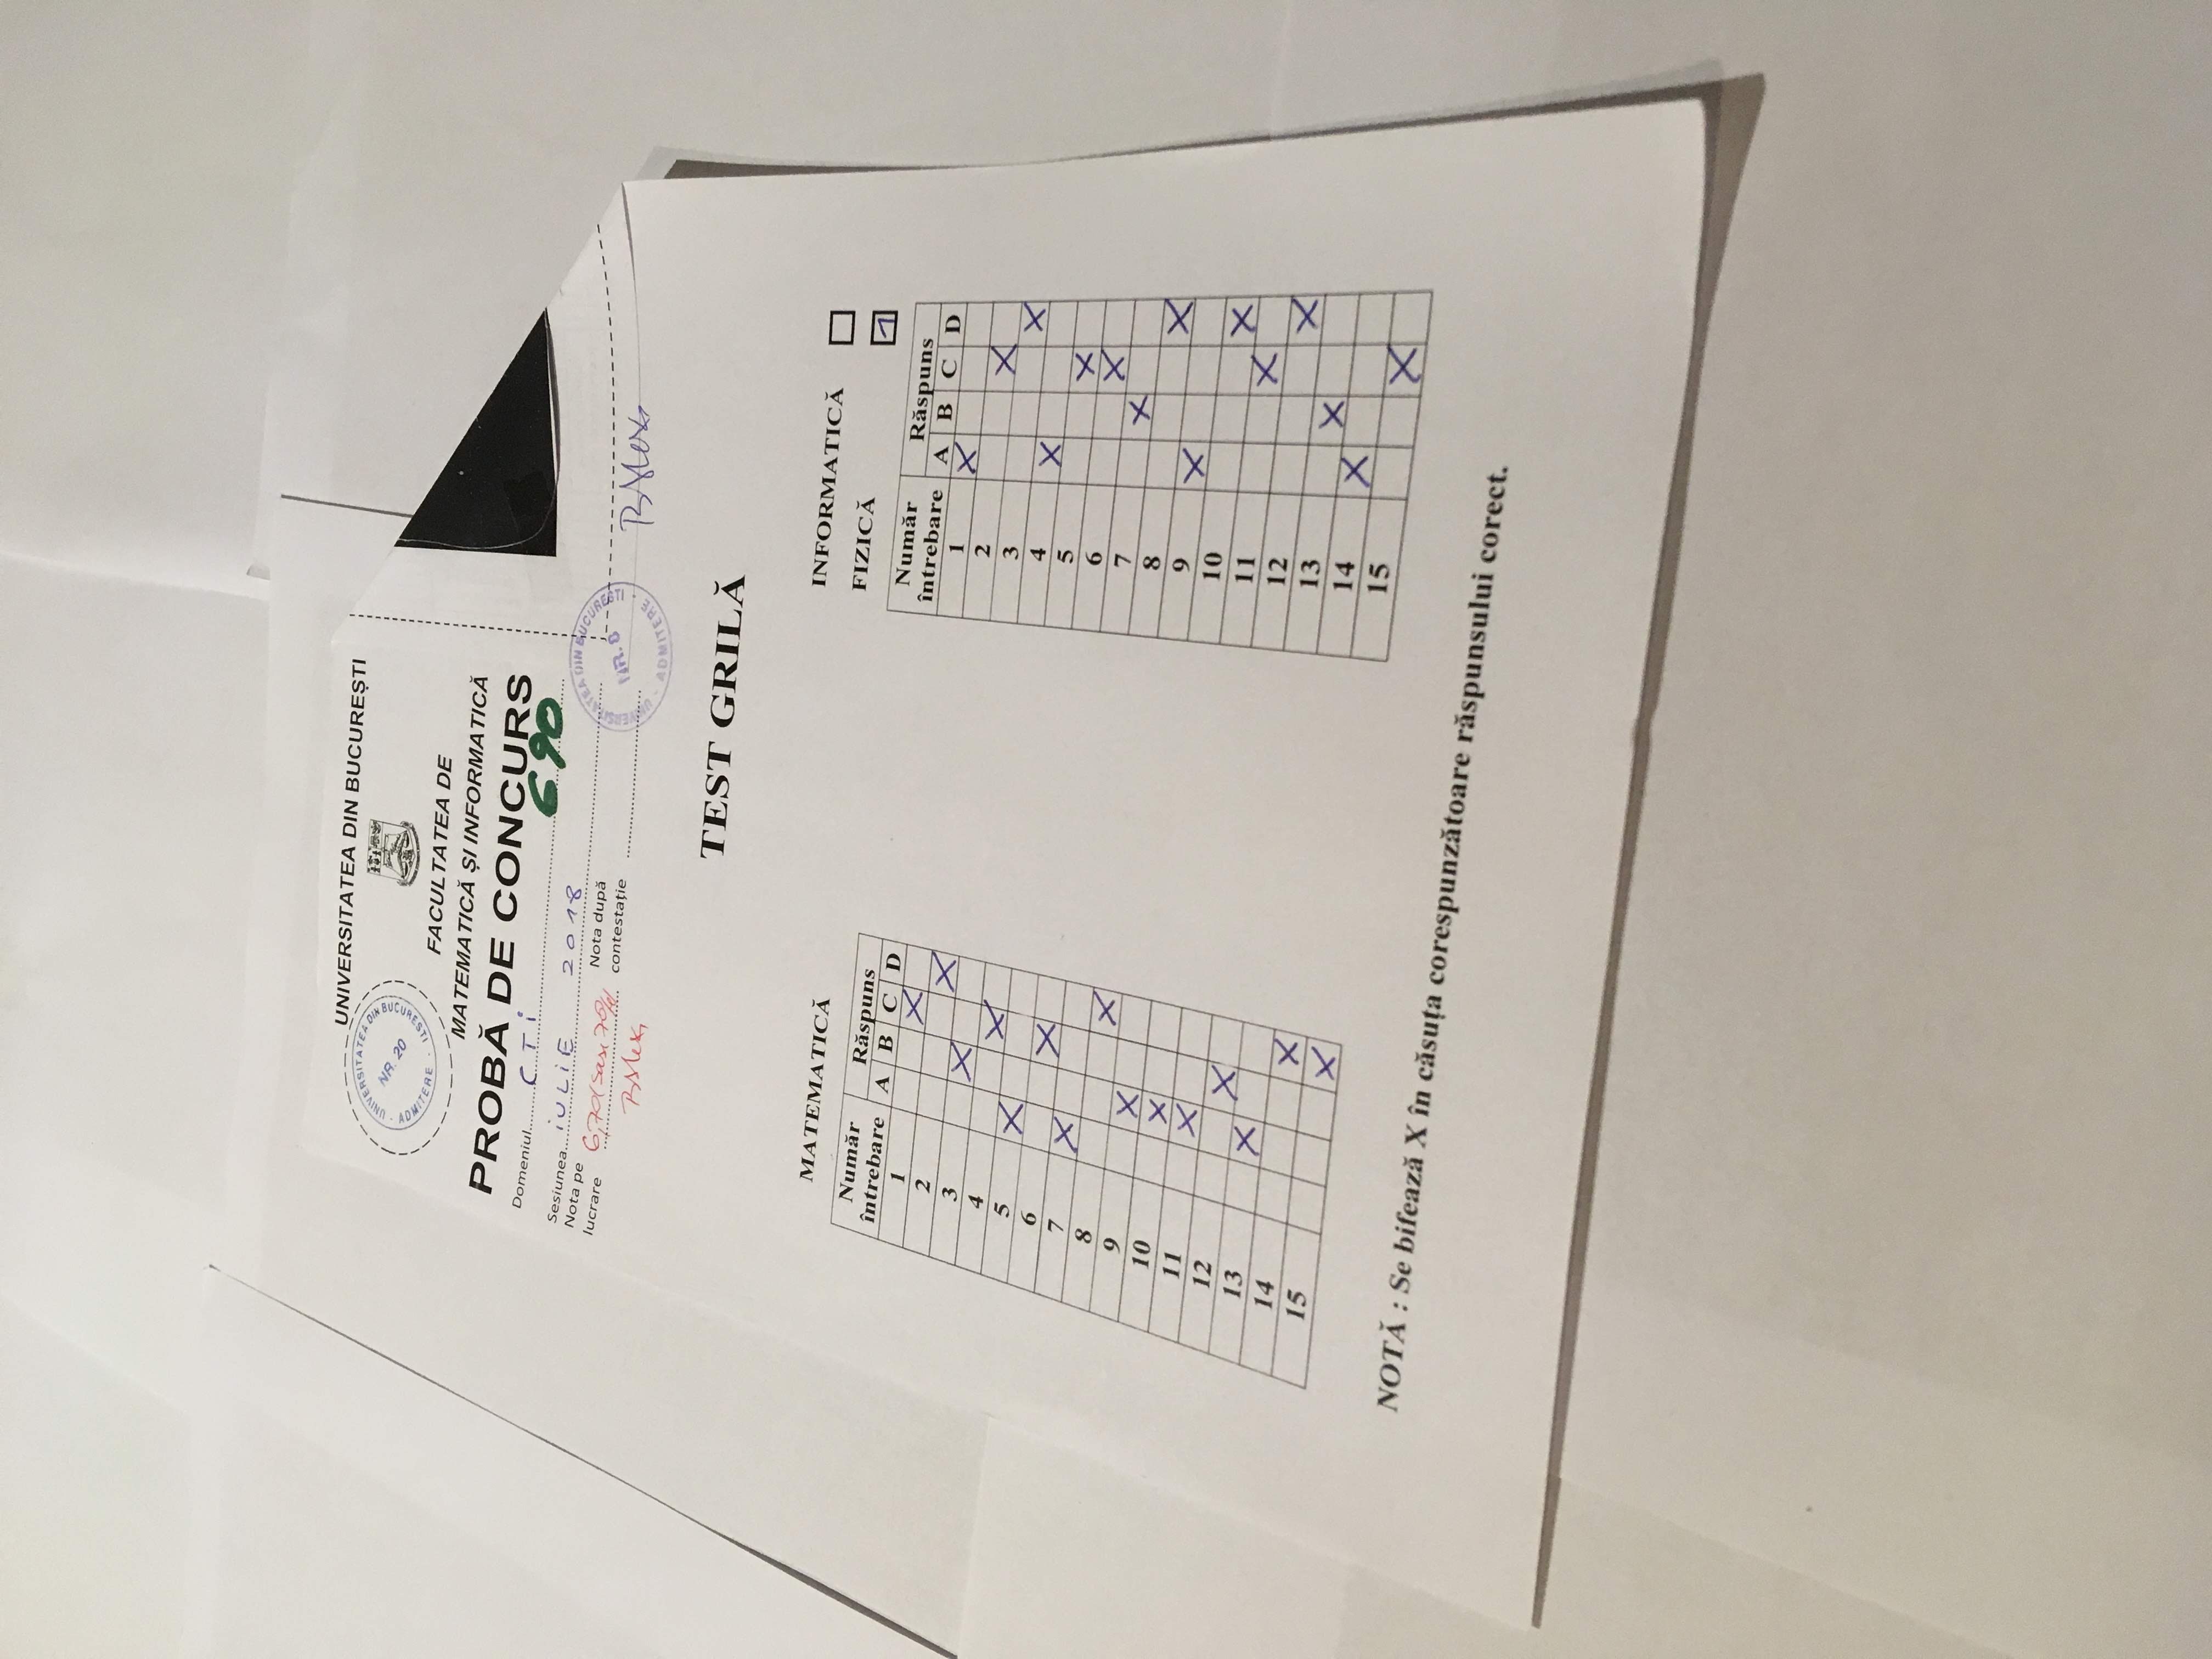 UNIVERSITATEA DIN BUCUREȘTI
UNIVERSITATEA DIN BUCUREȘTI · ADMITERE ·
NR. 20
FACULTATEA DE
MATEMATICĂ ȘI INFORMATICĂ
PROBĂ DE CONCURS
Domeniul CTI
690
Sesiunea IULIE 2018
Nota pe lucrare 6,70 (șase 70%)
Nota după contestație
UNIVERSITATEA DIN BUCUREȘTI - ADMITERE -
NR. 8
TEST GRILĂ
MATEMATICĂ
Număr întrebare Răspuns
A B C D
1 X
2 X
3 X
4 X
5 X
6 X
7 X
8 X
9 X
10 X
11 X
12 X
13 X
14 X
15 X
INFORMATICĂ
FIZICĂ 1
Număr întrebare Răspuns
A B C D
1 X
2 X
3 X
4 X
5 X
6 X
7 X
8 X
9 X
10 X
11 X
12 X
13 X
14 X
15 X
NOTĂ : Se bifează X în căsuța corespunzătoare răspunsului corect.